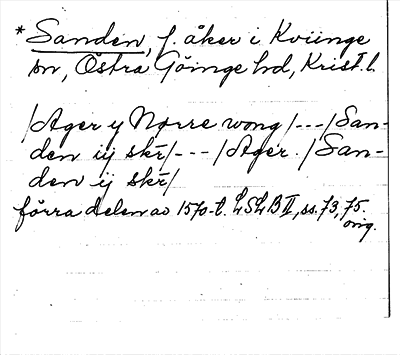 *Sanden, f. åker i Kviinge
sn, Östra Göinge hd, Krist. l.
/Ager y Norre wong/---/San-
den iij skr̄/---/Ager./San-
den ij skr̄/
förra delen av 1570-t. LSLB II, ss. 73, 75.
orig.